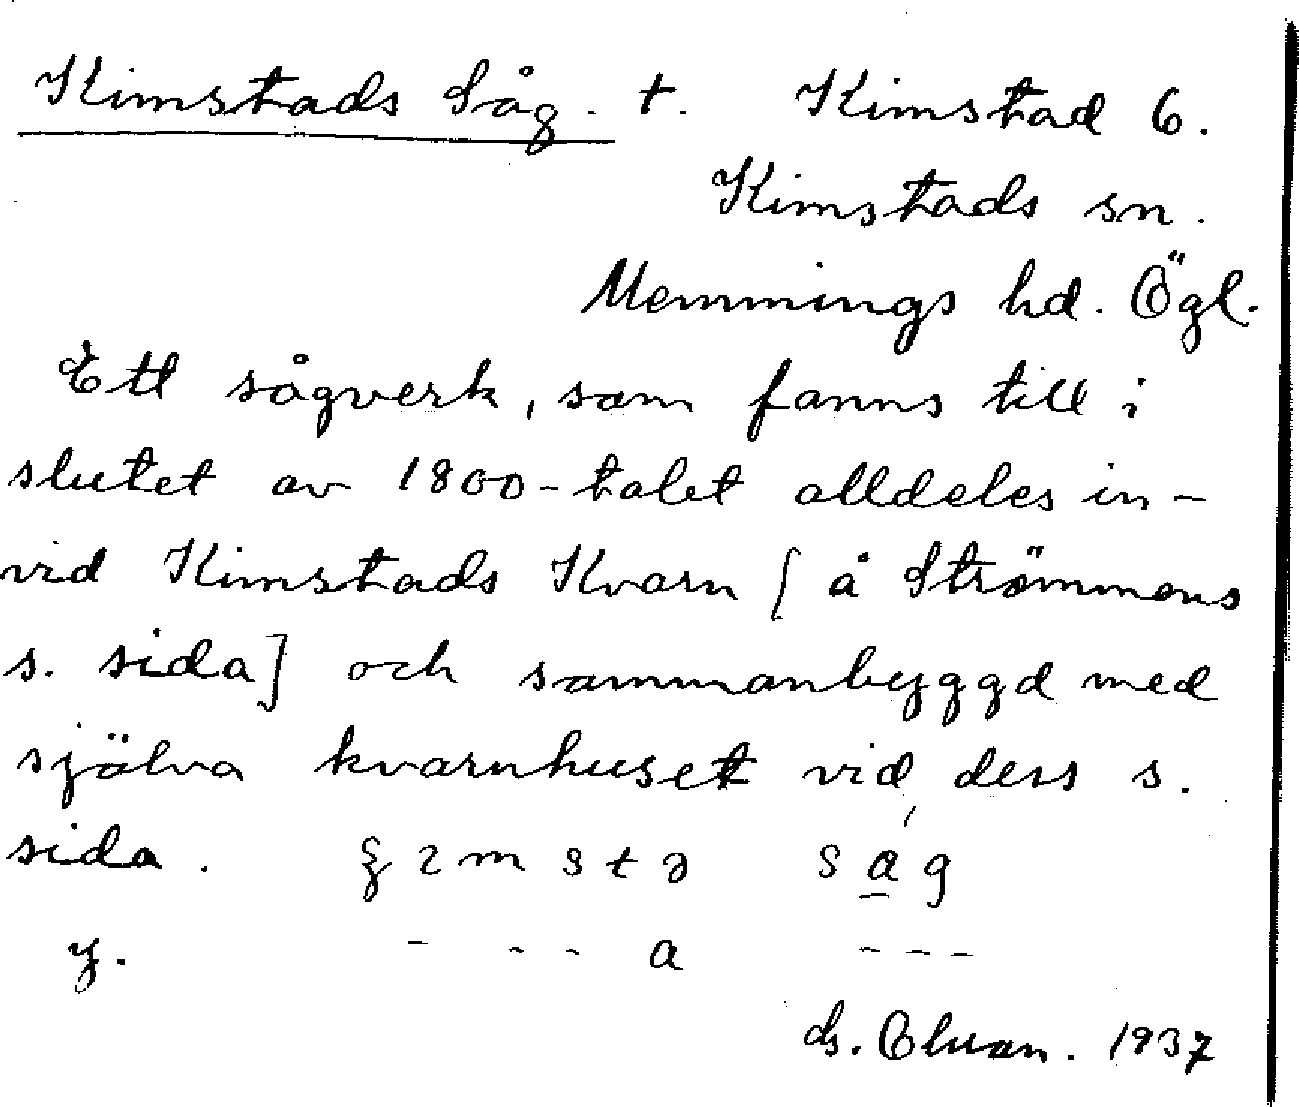 Kimstads Såg. t. Kimstad 6.
Kimstads sn.
Memmings hd. Ögl.
Ett sågverk, som fanns till i
slutet av 1800-talet alldeles in-
vid Kimstads Kvarn [å Strömmens
s. sida] och sammanbyggd med
själva kvarnhuset vid dess s.
sida.
y. - - - a - - -
1937